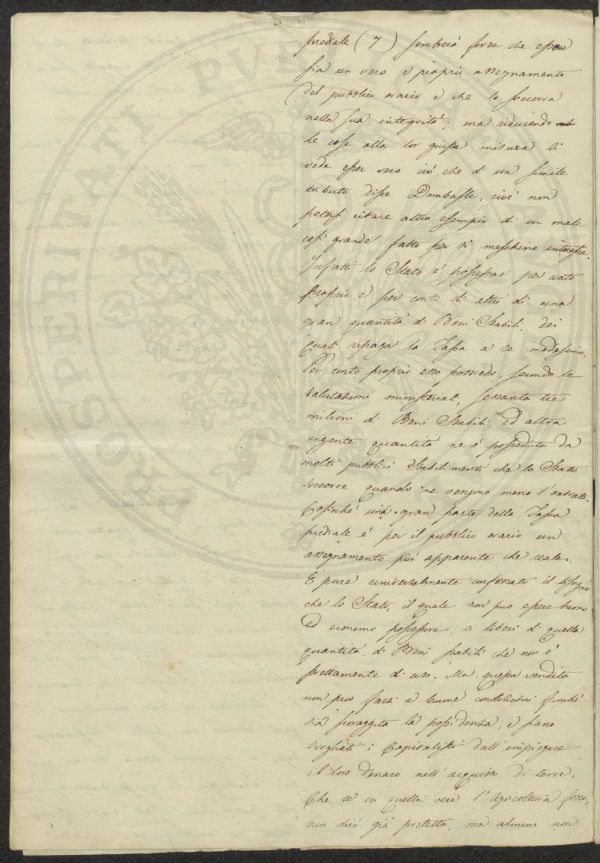 prediale (7) sembrerà forse che essa
sia un vero e proprio assegnamento
del pubblico erario e che lo soccorra
nella sua integrità; ma riducendo
le cose alla lor giusta misura si
vede esser vero ciò che di un simile
tributo disse Dombasle, cioè non
potersi citare altro esempio di un male
così grande fatto per sì meschino interesse.
Infatti lo Stato è possessore per conto
proprio e per conto di altri di una
gran quantità di Beni Stabili, dei
quali ripaga la Tassa a se medesimo.
Per conto proprio esso possiede, secondo la
valutazione ministerial, sessanta tre
milioni di Beni Stabili, ed altra
ingente quantità ne è posseduta da
molti pubblici Stabilimenti che lo Stato
soccorre quando ne vengono meno l'entrate.
Cosicché una gran parte della Tassa
prediale è per il pubblico erario un
assegnamento più apparente che reale.
È pure universalmente confessato il bisogno
che lo Stato, il quale non può essere buono
ed economo possessore, si liberi di quella
quantità di Beni stabili che non è
strettamente di uso. Ma questa vendita
non può farsi a buone condizioni finché
sia scoraggita la possidenza, e siano
svogliati i Capitalisti dall'impiegare
il loro denaro nell'acquisto di terre.
Che se in quella vece l'Agricoltura fosse,
non dirò già protetta, ma almeno non
PROSPERITATI PVBL